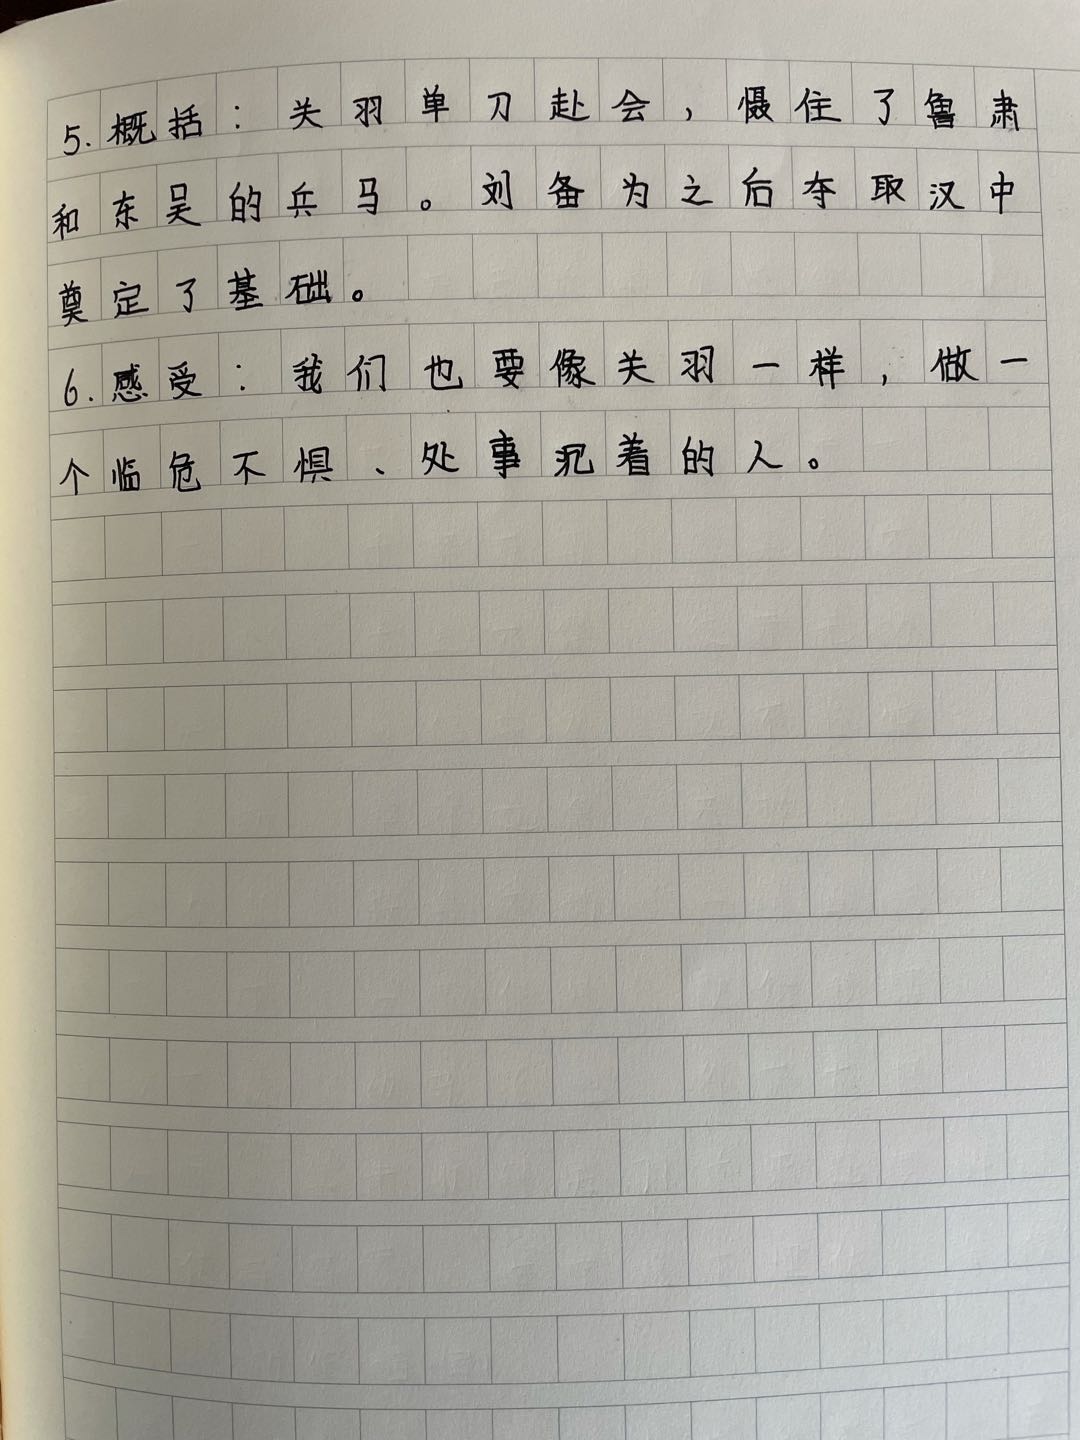 5.概括：关羽单刀赴会，慑住了鲁肃
和东吴的兵马。刘备为之后夺取汉中
奠定了基础。
6.感受：我们也要像关羽一样，做一
个临危不惧、处事沉着的人。